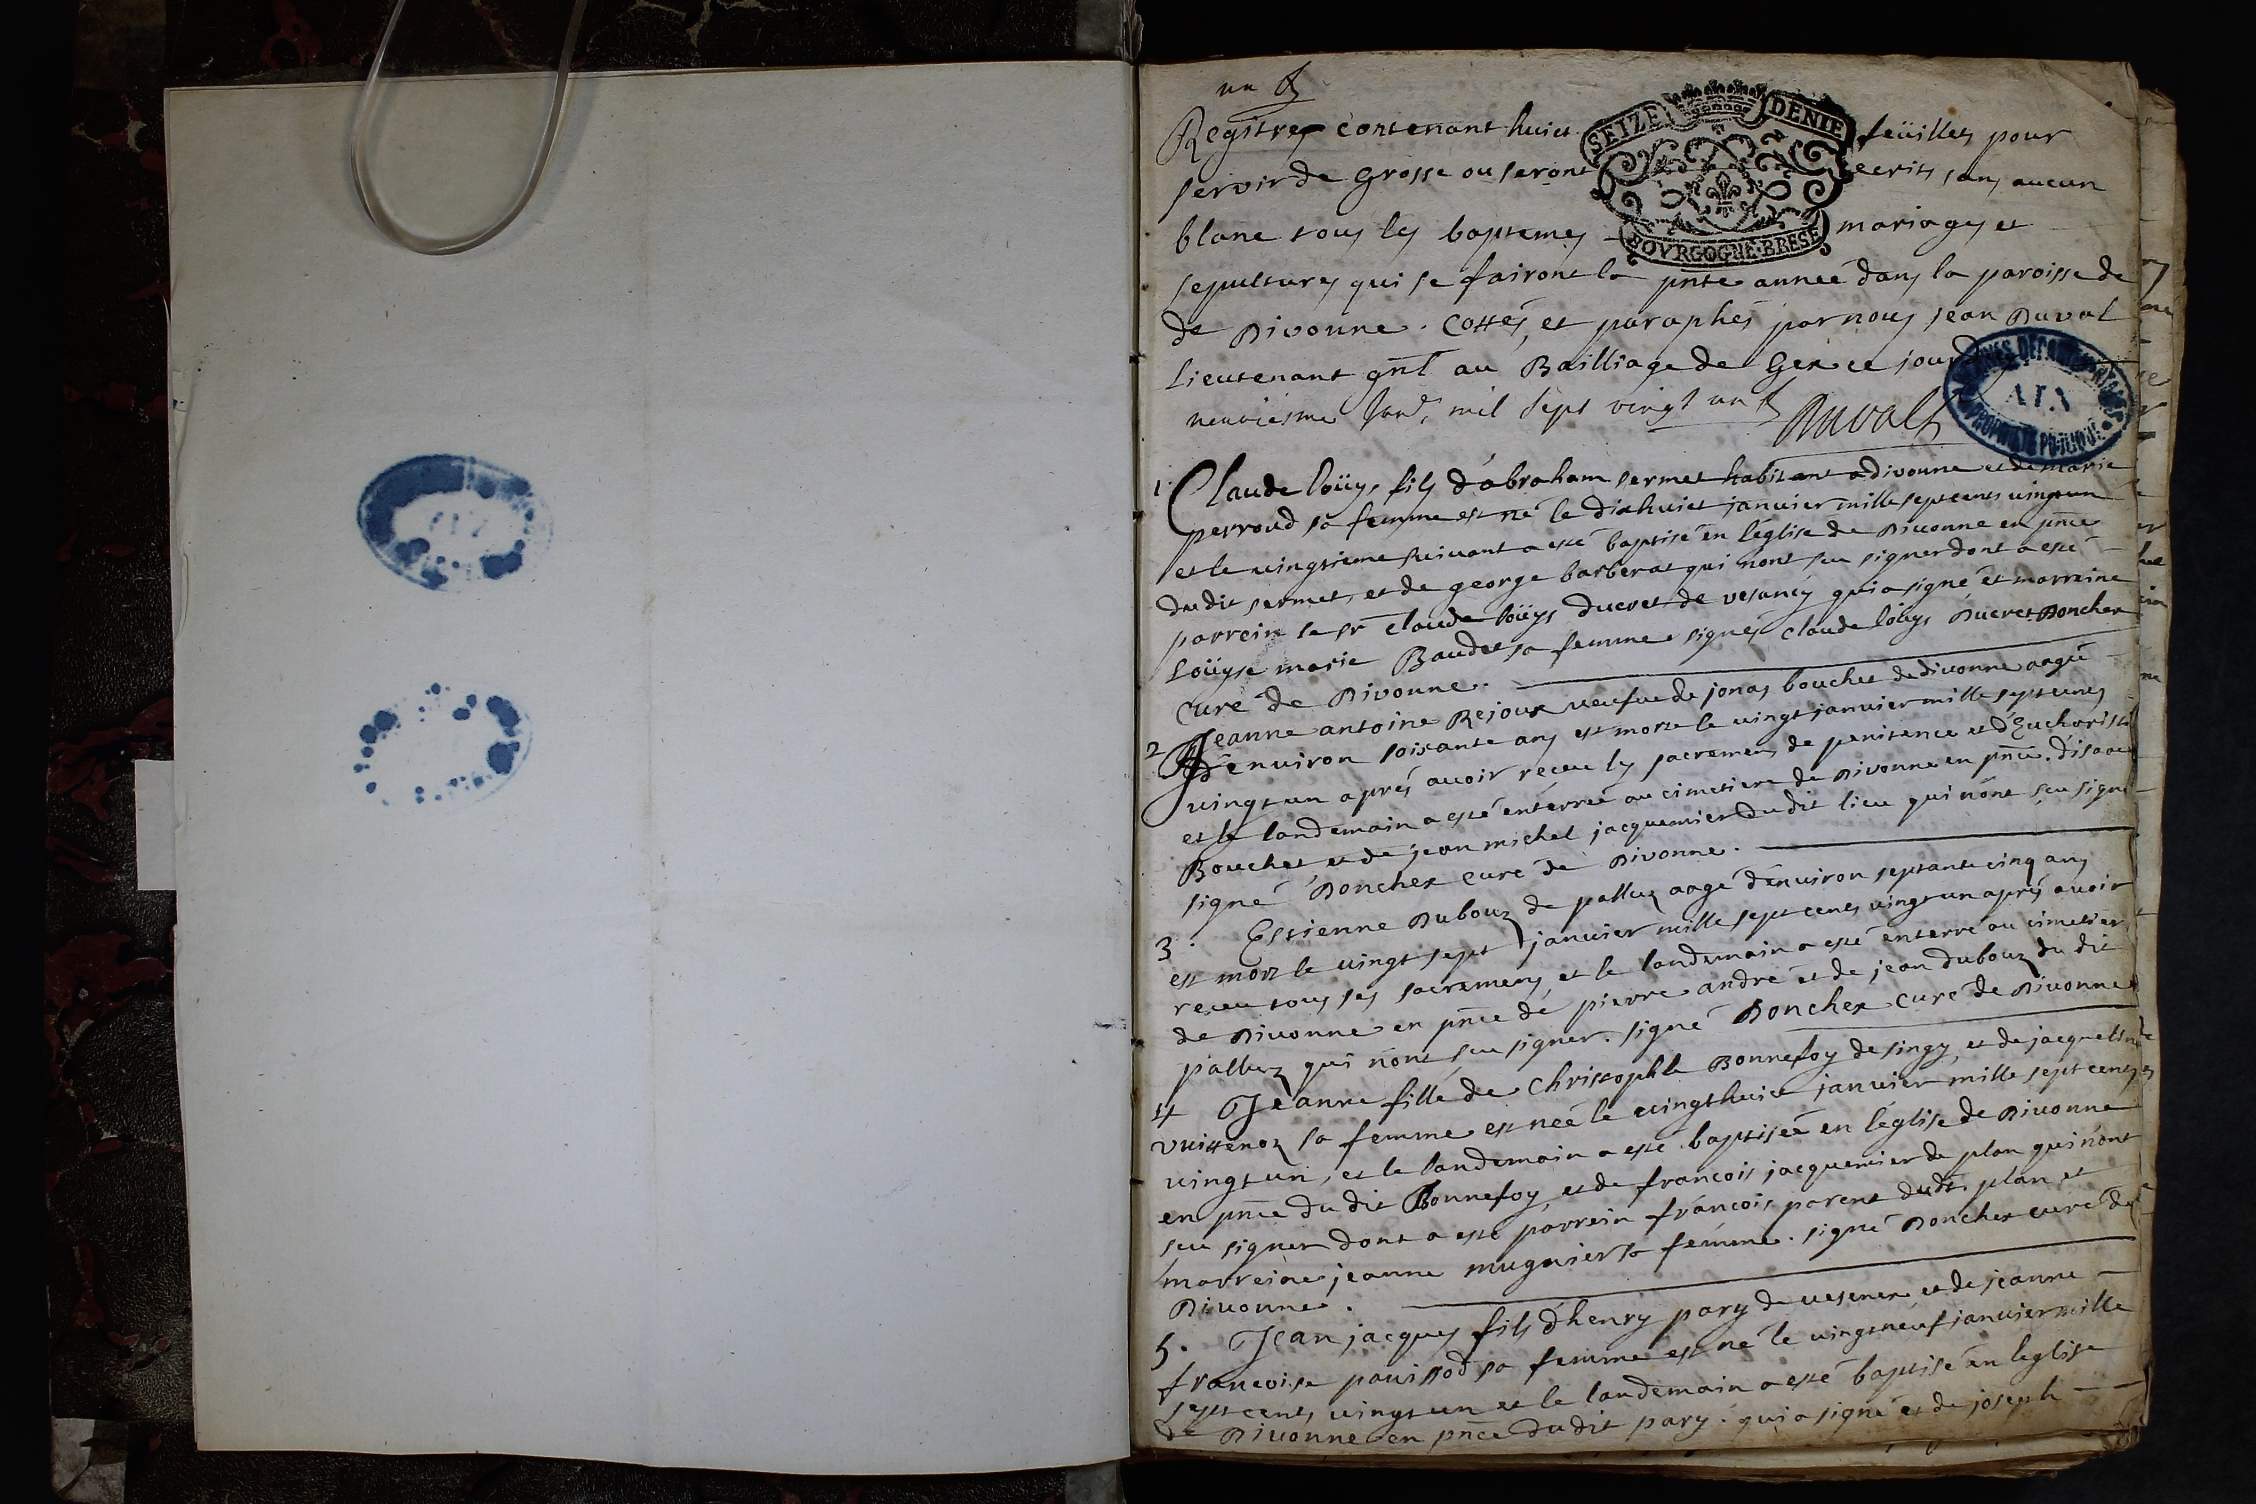 un
Registre contenant huict feüilles pour
servir de grosse ou seront ecrits sans aucun
blanc tous les baptemes mariages et
sepultures qui se fairont la pnte année dans la paroisse de
de Divonne. Cottés, et paraphés par nous jean Duval
Lieutenant gnl au Bailliage de Gex ce jourd
neuviesme Janr, mil sept vingt un Duval
SEIZE DENIE
BOVRGOGNE·BRESE
AIN
1. Claude loüys fils d'abraham sermet habitant a divonne et de marie
perroud sa femme est né le dixhuict janvier mille septcents vingtun
et le vingtieme suivant a esté baptisé en l'église de Divonne en pnce
dudit sermet, et de george barberat qui nont sçu signer dont a esté
parrein le sr Claude loüys ducret de vesancy qui a signé et marreine
Loüyse marie Baudet sa femme signés Claude loüys Ducret Doncher
Curé de Divonne.
2 Jeanne antoine Rejoux veufue de jonas bouchet de divonne aagée
d'environ soisante ans est morte le vingt janvier mille septcents
vingtun aprés avoir receu les sacremens de penitence et d'Eucharistie
et le landemain a esté enterrée au cimetiere de Divonne en pnce. d'isaac
Bouchet et de jean michel jacquemier dudit lieu qui nont sçu signé
signé Doncher curé de Divonne.
3. Estienne Dubouz de palluz aagé d'environ septante cinq ans
est mort le vingt sept janvier mille sept cents vingtun aprés avoir
receu tous ses sacremens, et le landemain a esté enterré au cimetier
de Divonne en pnce de pierre andré et de jean dubouz du dit
palluz qui nont sçu signer. signé Doncher Curé de Divonne
4 Jeanne fille de Christophle Bonnefoy de singy, et de jacqueline
vuittenoz sa femme est née le vingthuict janvier mille sept cents
vingtun, et le landemain a esté baptisée en l'église de Divonne
en pnce du dit Bonnefoy, et de francois jacquemier de plan qui nont
sçu signer dont a esté parrein francois parent dudt. plan et
marreine jeanne mugnier sa femme. signé Doncher curé de
Divonne.
5. Jean jacques fils d'henry pary de vesenex et de jeanne
francoise panissod sa femme est né le vingtneuf janvier mille
sept cents vingtun et le landemain a esté baptisé en leglise
de Divonne en pnce dudit pary. qui a signé et de joseph